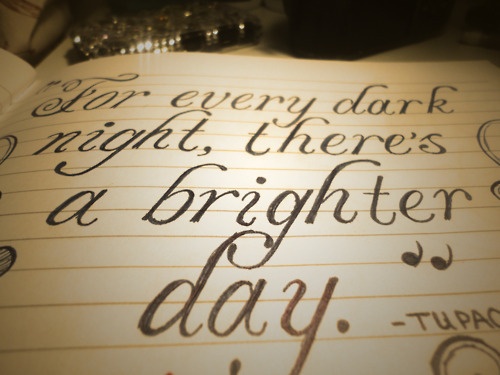 "For every dark
night, there's
a brighter
day."
-TUPAC